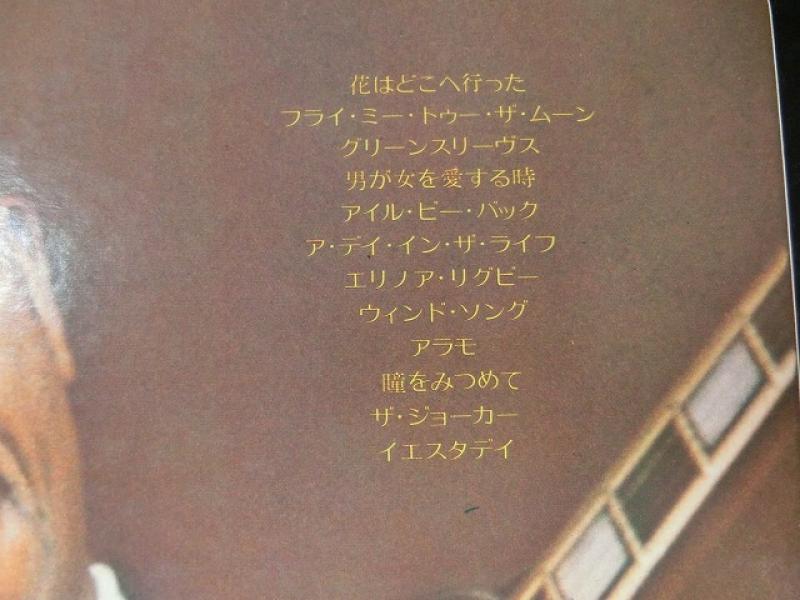 花はどこへ行った
フライ・ミー・トゥー・ザ・ムーン
グリーンスリーヴス
男が女を愛する時
アイル・ビー・バック
ア・デイ・イン・ザ・ライフ
エリノア・リグビー
ウィンド・ソング
アラモ
瞳をみつめて
ザ・ジョーカー
イエスタデイ